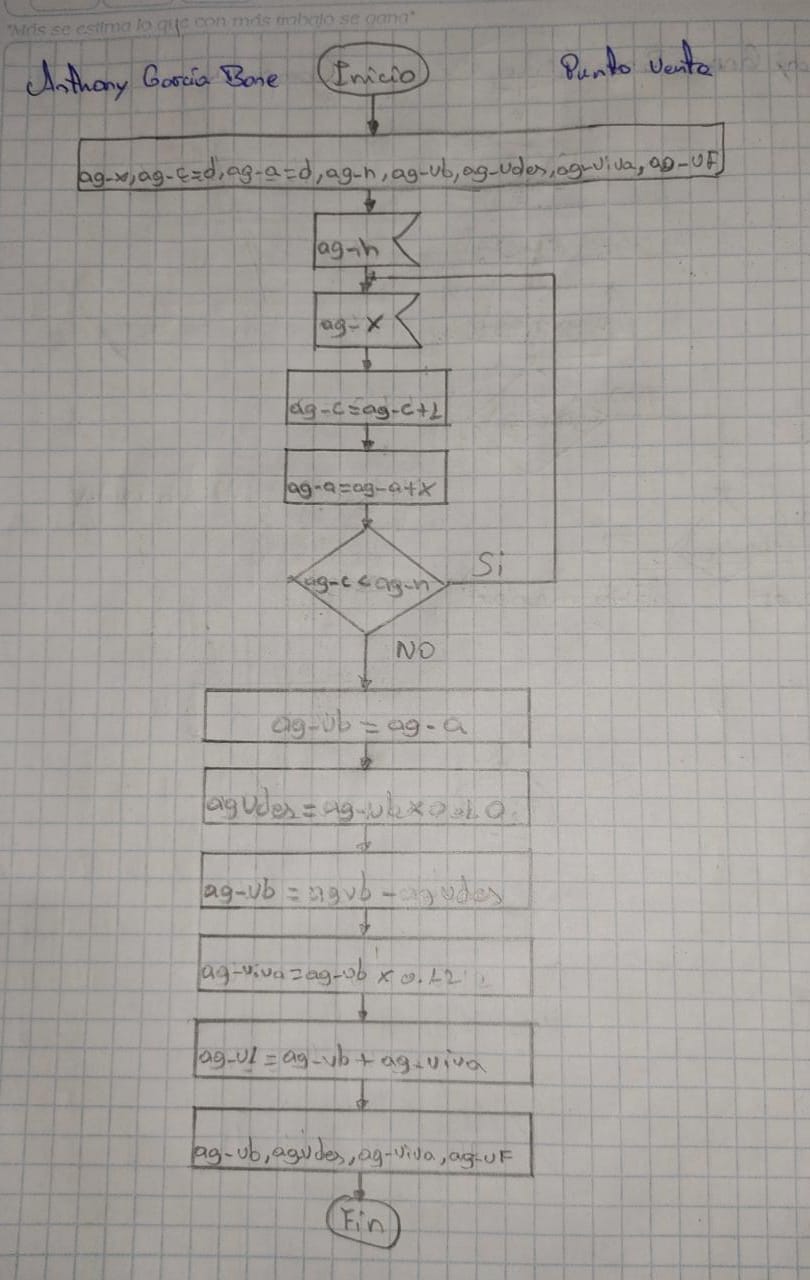 "Más se estima lo que con más trabajo se gana"
Anthony García Bone
Inicio
Punto Venta
ag-x, ag-c=d, ag-a=d, ag-n, ag-vb, ag-vdes, ag-viva, ag-vF
ag-n
ag-x
ag-c=ag-c+1
ag-a=ag-a+x
ag-c < ag-n
Si
NO
ag-vb = ag-a
agvdes = ag-vb x 0.10
ag-vb = agvb - agvdes
ag-viva = ag-vb x 0.12
ag-vf = ag-vb + ag-viva
ag-vb, agvdes, ag-viva, ag-vF
Fin